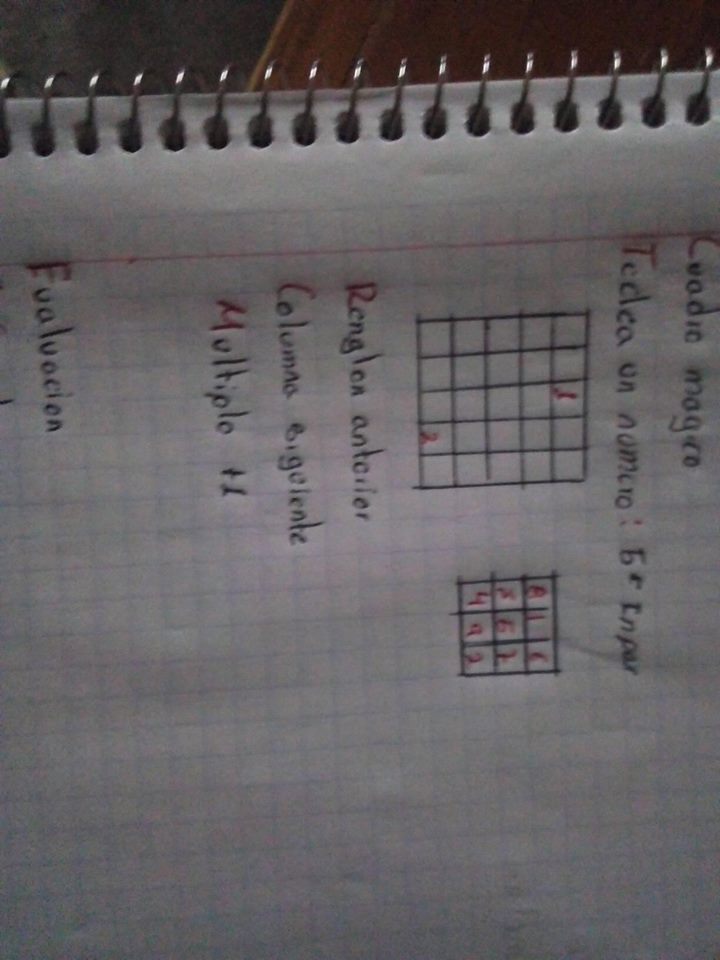 Cuadro magico
Teclea un numero: 5 ← Inpar
1
2
8 1 6
3 5 7
4 9 2
Renglon anterior
Columna siguiente
Multiplo +1
Evaluacion